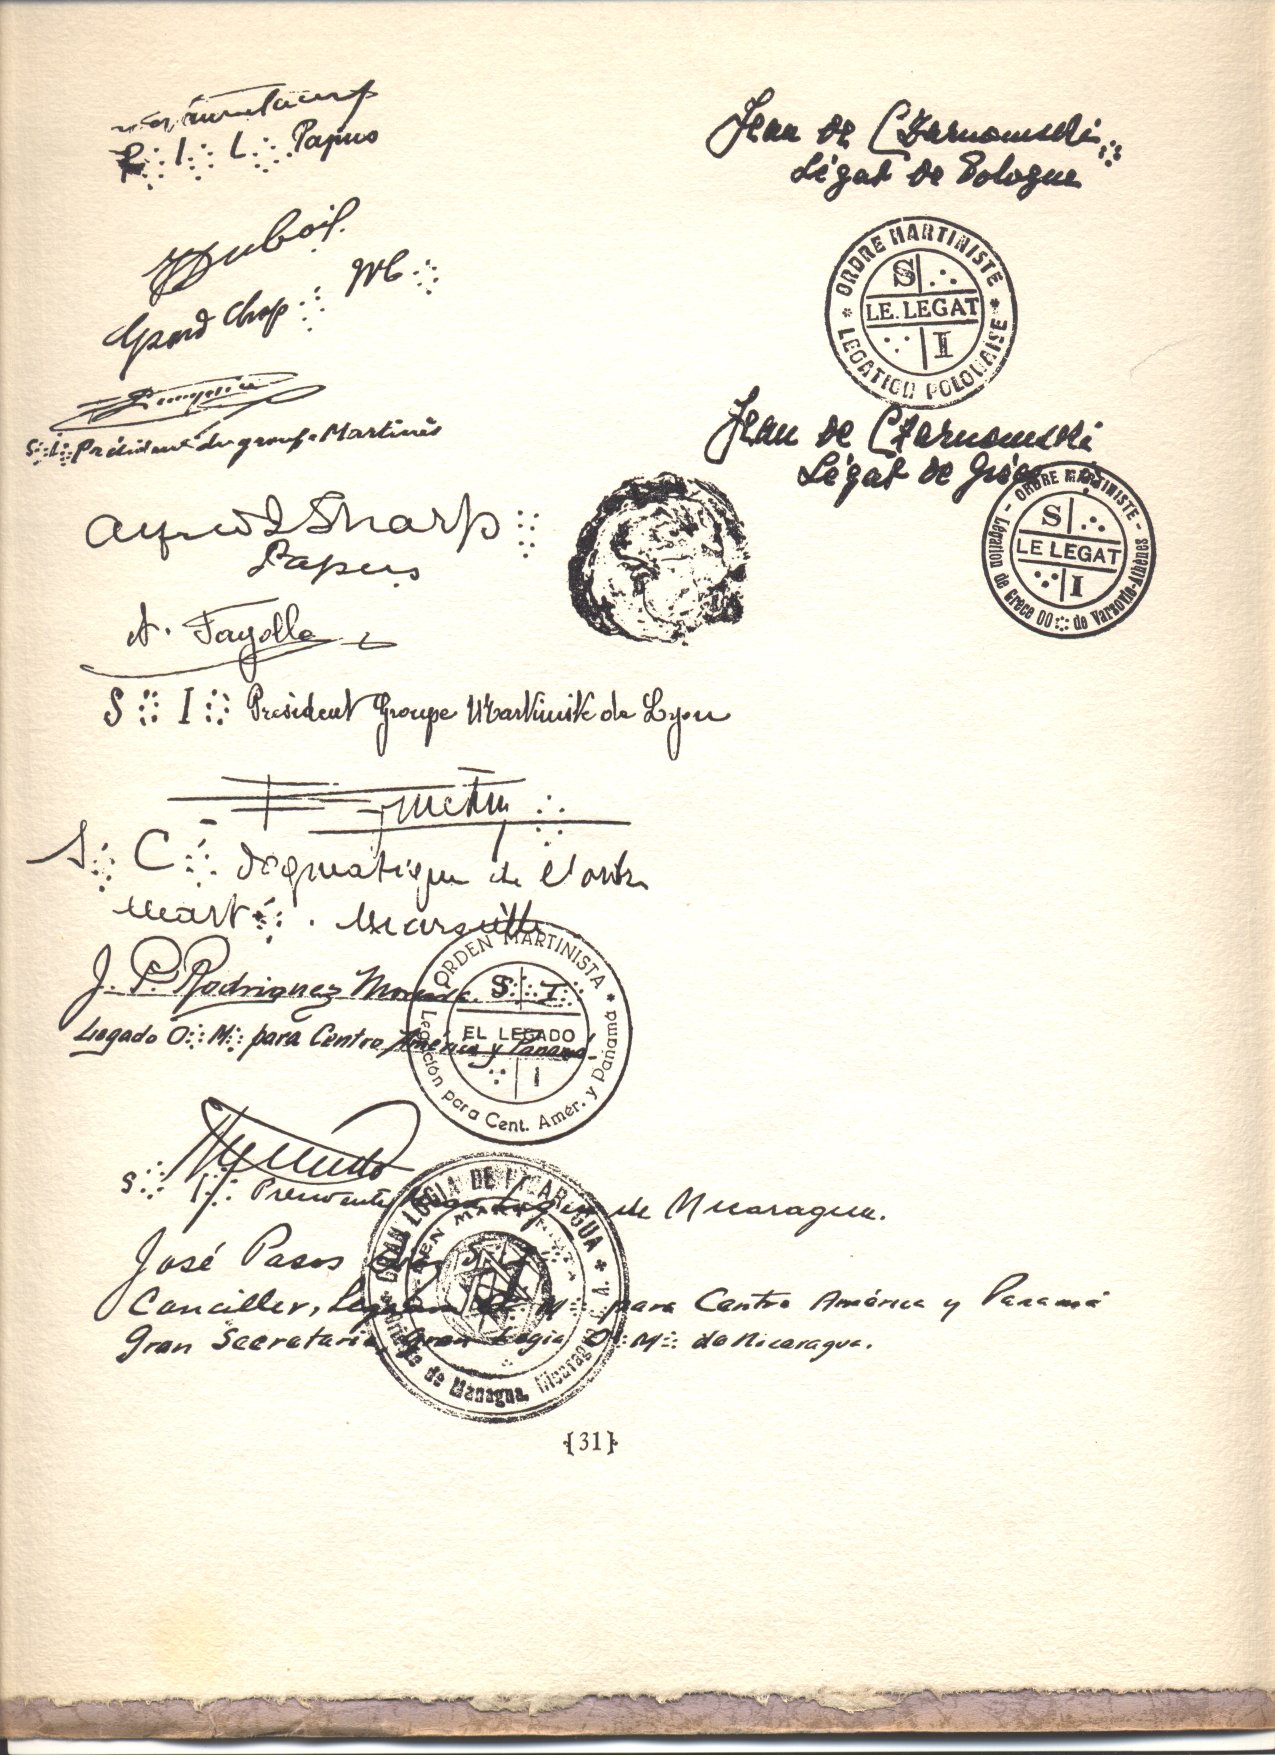 S∴ I∴ L∴ Papus
Dubois
Grand Chap∴
S∴ I∴ Président du groupe Martinès
Alfred I Sharp
Papus
A. Fayolle
S∴ I∴ Président Groupe Martiniste de Lyon
S∴ C∴ dogmatique de l'ordre
Mart∴ Marseille
J. P. Rodriguez Moncada.
Legado O∴ M∴ para Centro América y Panamá.
ORDEN MARTINISTA * Legación para Cent. Amér. y Panamá *
S∴ I∴
EL LEGADO
I
S∴ I∴ Presidente Logia de Nicaragua.
José Pasos
Canciller, Legación O∴ M∴ para Centro América y Panamá
Gran Secretario, Gran Logia O∴ M∴ de Nicaragua.
GRAN LOGIA DE NICARAGUA
de Managua, Nicaragua
Jean de Czarnomski
Légat de Pologne
ORDRE MARTINISTE * LEGATION POLONAISE *
S
LE. LEGAT
I
Jean de Czarnomski
Légat de Grèce
ORDRE MARTINISTE - Légation de Grèce OO∴ de Varsovie-Athènes -
S
LE LEGAT
I
{31}